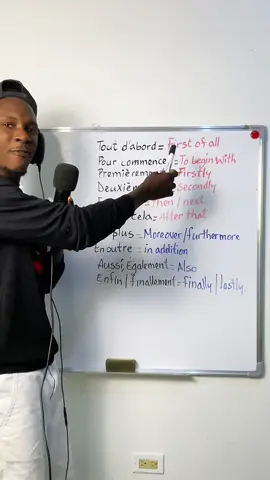 Tout d'abord = First of all
Pour commence = To begin with
Première = Firstly
Deuxième Secondly
= Then / next
cela = After that
plus = Moreover/furthermore
En outre = in addition
Aussi, Également = Also
Enfin / finalement = finally / lastly.